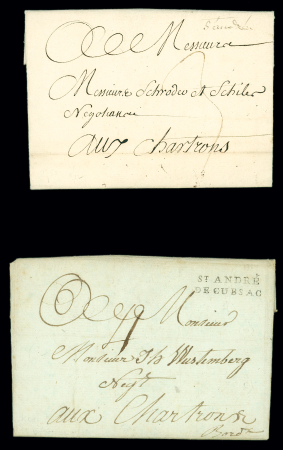 Messieurs
Messieurs Schroder et Schiler
Negotians
aux Chartrons
ST ANDRÉ
DE CUBZAC
Monsieur
Monsieur J.h Wustemberg
Negt
aux Chartrons
Bordx